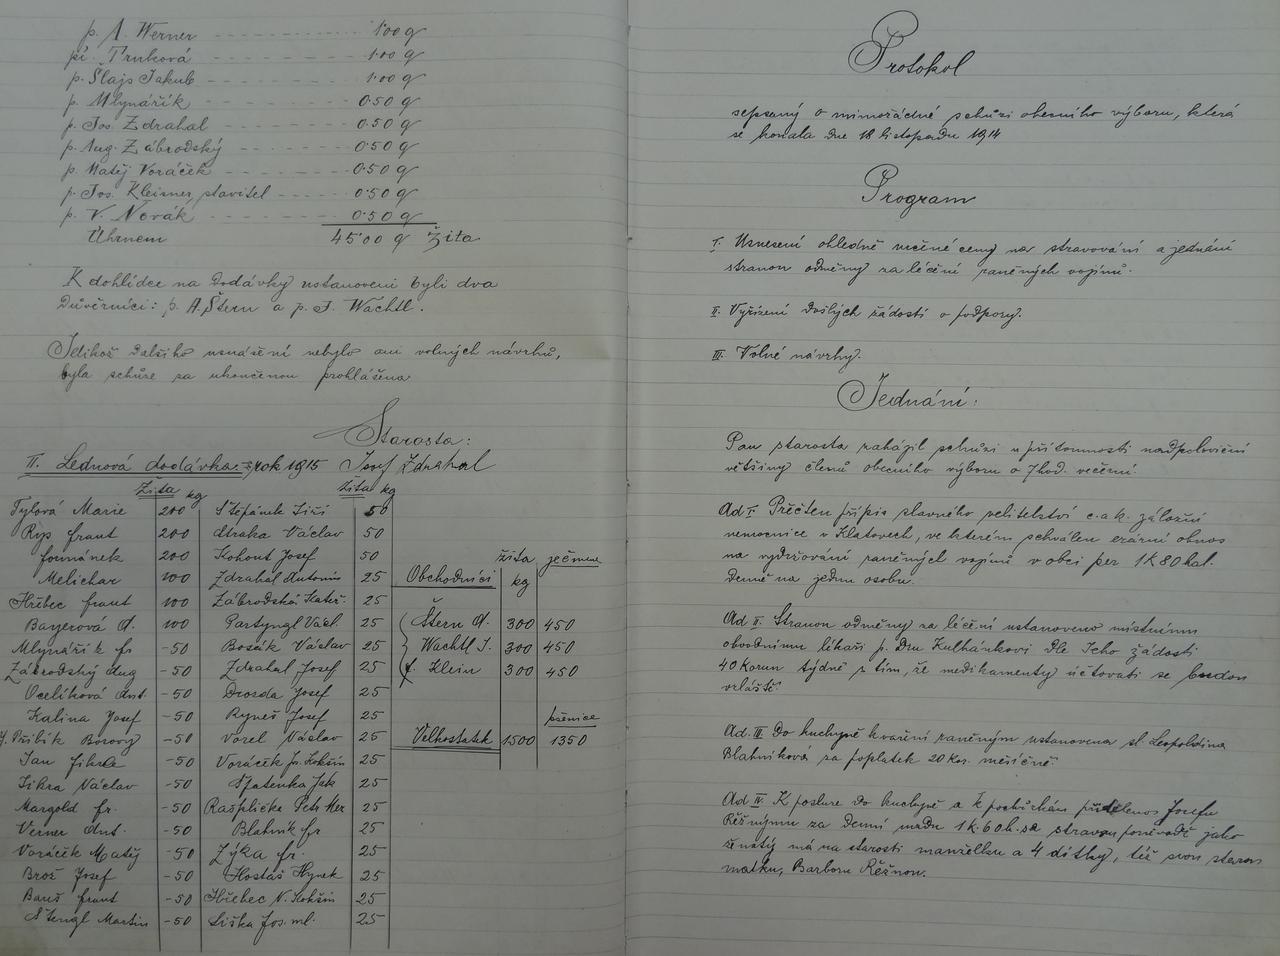 p. A. Werner - - - - - - - - 1·00 q
pí. Trnková - - - - - - - - 1·00 q
p. Šlajs Jakub - - - - - - - - 1·00 q
p. Mlynářík - - - - - - - - 0·50 q
p. Jos. Zdrahal - - - - - - - - 0·50 q
p. Aug. Zábrodský - - - - - - - - 0·50 q
p. Matěj Voráček - - - - - - - - 0·50 q
p. Jos. Kleisner, stavitel - - - - - 0·50 q
p. V. Novák - - - - - - - - 0·50 q
Úhrnem 45·00 q Žita
K dohlídce na dodávky ustanoveni byli dva
Důvěrníci: p. A. Štern a p. J. Wachtl.
Jelikož dalšího usnášení nebylo ani volných návrhů,
byla schůze za ukončenou prohlášena
Starosta:
Josef Zdrahal
II. Lednová dodávka rok 1915
Žita kg Žita kg
Tylová Marie 200 Štěpánek Jiří 50
Rys Frant 200 Straka Václav 50
Formánek 200 Kohout Josef 50
Melichar 100 Zdrahal Antonín 25
Hřebec Frant 100 Zábrodská Kateř. 25
Bayerová A. 100 Partyngl Václ. 25
Mlynářík Fr - 50 Bosák Václav 25
Zábrodský Aug - 50 Zdrahal Josef 25
Ocelíková Ant - 50 Drozda Josef 25
Kalina Josef - 50 Ryneš Josef 25
Přibík Borový - 50 Vozel Václav 25
Jan Jihra - 50 Voráček Jr. Kokšín 25
Jikra Václav - 50 Špatenka Jak 25
Margold Fr. - 50 Rašplička Petr Mer 25
Verner Ant. - 50 Blahník Fr 25
Voráček Matěj - 50 Zýka Fr. 25
Brož Josef - 50 Hostaš Hynek 25
Bareš Frant - 50 Hřebec V. Kokšín 25
Štengl Martin - 50 Liška Jos. ml. 25
Obchodníci žita kg ječmene
Štern A. 300 450
Wachtl J. 300 450
Klein 300 450
pšenice
Velkostatek 1500 1350
Protokol
sepsaný o mimořádné schůzi obecního výboru, která
se konala dne 18 listopadu 1914
Program
I. Usnesení ohledně určené ceny na stravování a jednání
stranou odměny za léčení raněných vojínů.
II. Vyřízení došlých žádostí o podpory.
III. Volné návrhy.
Jednání:
Pan starosta zahájil schůzi u přítomnosti nadpoloviční
většiny členů obecního výboru o 7 hod. večerní.
Ad I. Přečten přípis slavného velitelství c. a k. záložní
nemocnice v Klatovech, ve kterém schválen erární obnos
na vydržování raněných vojínů v obci per 1 K 80 hal.
denně na jednu osobu.
Ad II. Stranou odměny za léčení ustanoveno místnímu
obvodnímu lékaři p. Dru Kulhánkovi dle Jeho žádosti
40 Korun týdně s tím, že medikamenty účtovati se budou
zvláště.
Ad. III. Do kuchyně k vaření raněným ustanovena sl. Leopoldina
Blahníková za poplatek 20 Kor. měsíčně.
Ad IV. K posluze do kuchyně a k pochůzkám přidělenos Josefu
Řežnýmu za denní mzdu 1 K. 60 h. se stravou poněvadž jako
ženatý má na starosti manželku a 4 dítky, též svou starou
matku, Barboru Řežnou.